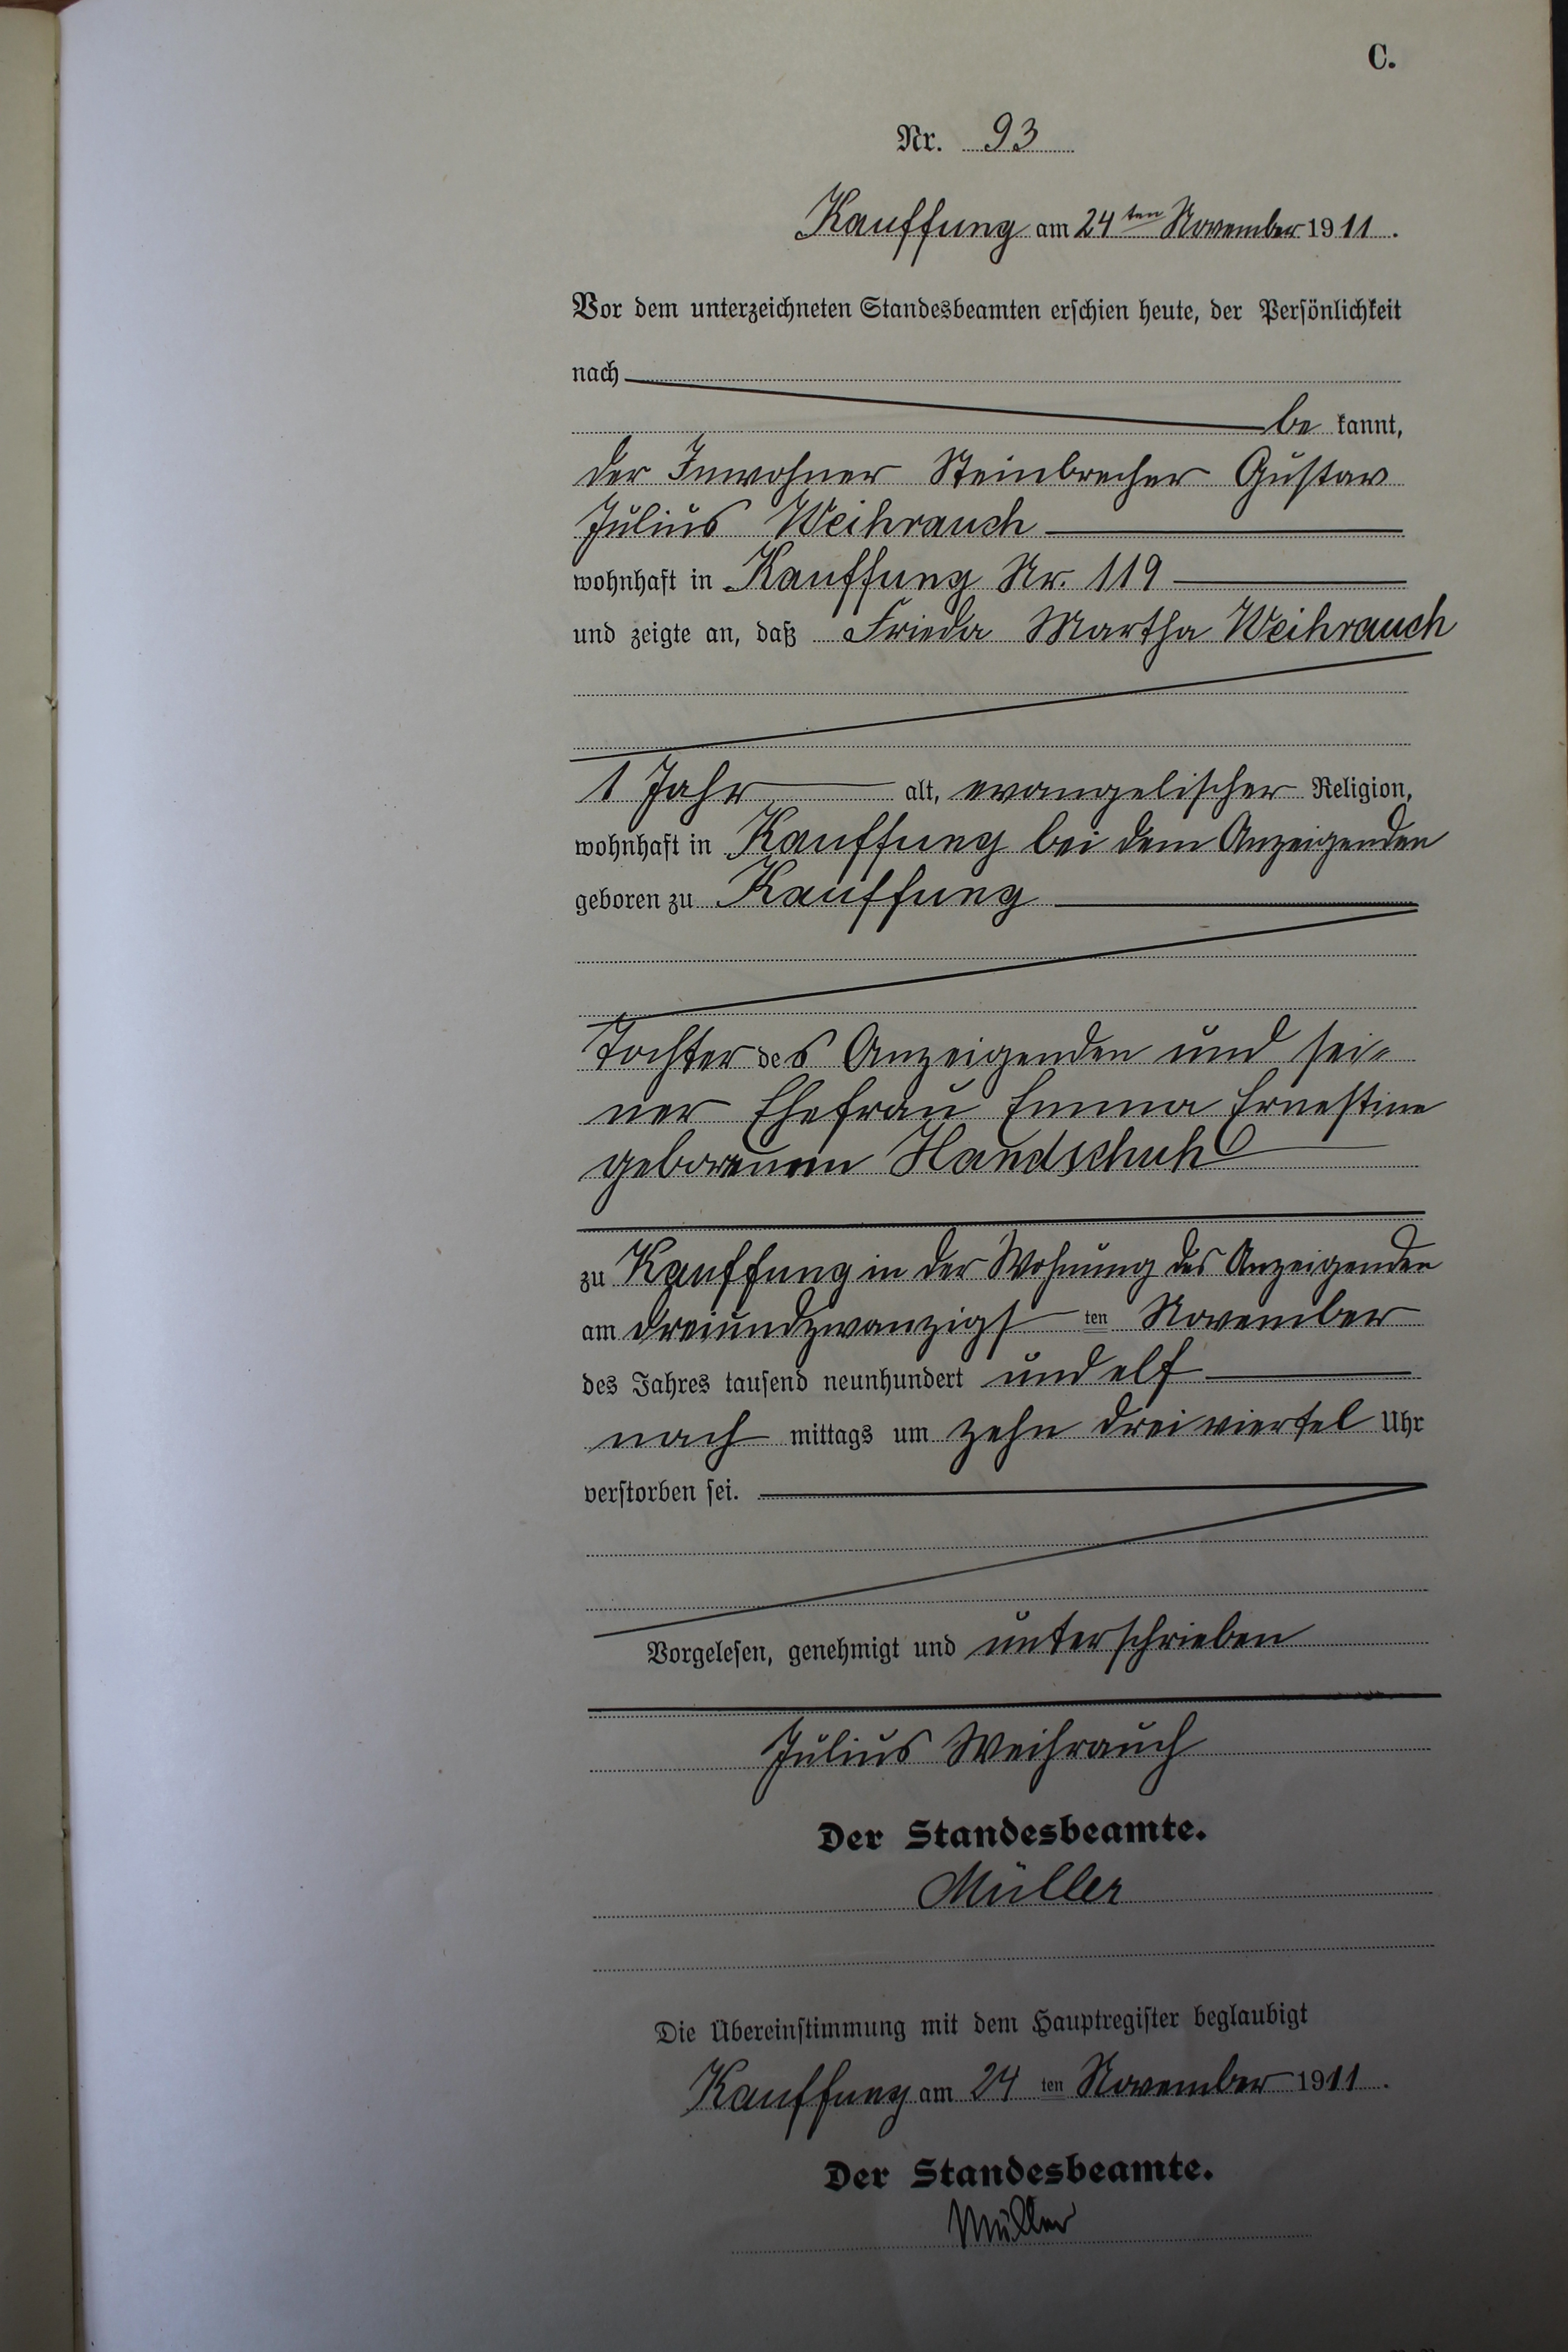 C.
Nr. 93
Kauffung am 24ten November 1911.
Vor dem unterzeichneten Standesbeamten erschien heute, der Persönlichkeit
nach
be kannt,
der Inwohner Steinbrecher Gustav
Julius Weihrauch
wohnhaft in Kauffung Nr. 119
und zeigte an, daß Frieda Martha Weihrauch
1 Jahr alt, evangelischer Religion,
wohnhaft in Kauffung bei dem Anzeigenden
geboren zu Kauffung
Tochter des Anzeigenden und sei=
ner Ehefrau Emma Ernestine
geborenen Handschuh
zu Kauffung in der Wohnung des Anzeigenden
am dreiundzwanzigsten November
des Jahres tausend neunhundert und elf
nach mittags um zehn dreiviertel Uhr
verstorben sei.
Vorgelesen, genehmigt und unterschrieben
Julius Weihrauch
Der Standesbeamte.
Müller
Die Übereinstimmung mit dem Hauptregister beglaubigt
Kauffung am 24 ten November 1911.
Der Standesbeamte.
Müller